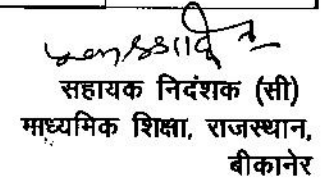 सहायक निदंशक (सी)
माध्यमिक शिक्षा, राजस्थान,
बीकानेर